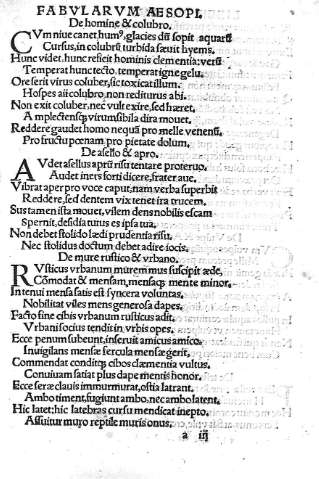 FABVLARVM AESOPI.
De homine & colubro.
CVm niue canet, humꝰ, glacies dū sopit aquarū
Cursus, in colubrū turbida sæuit hyems.
Hunc videt, hunc reficit hominis clementia: versū
Temperat hunc tecto, temperat igne gelu.
Ore serit virus coluber, sic toxicat illum.
Hospes ait colubro, non rediturus abi.
Non exit coluber, nec vult exire, sed hæret,
Amplectensq; virum sibila dira mouet.
Reddere gaudet homo nequā pro melle venenū,
Pro fructu pœnam, pro pietate dolum.
De asello & apro.
AVdet asellus aprū risu tentare proteruo.
Audet iners forti dicere, frater aue.
Vibrat aper pro voce caput, nam verba superbit
Reddere, sed dentem vix tenet ira trucem.
Sus tamen ista mouet, vilem dens nobilis escam
Spernit, desidia tutus es ipsa tua.
Non debet stolido lædi prudentia risu,
Nec stolidus doctum debet adire iocis.
De mure rustico & vrbano.
RVsticus vrbanum mūrem mus suscipit æde,
Cōmodat & mensam, mensaq; mente minor.
In tenui mensa satis est syncera voluntas,
Nobilitat viles mens generosa dapes.
Facto fine cibis vrbanum rusticus adit.
Vrbani socius tendit in vrbis opes.
Ecce penum subeunt, inseruit amicus amico,
Inuigilans mensæ fercula mensæ gerit,
Commendat conditq; cibos clæmentia vultus.
Conuiuam satiat plus dape mentis honor.
Ecce seræ clauis immurmurat, ostia latrant.
Ambo timent, fugiunt ambo, nec ambo latent.
Hic latet: hic latebras cursu mendicat inepto.
Assuitur muro reptile muris onus.
a iij